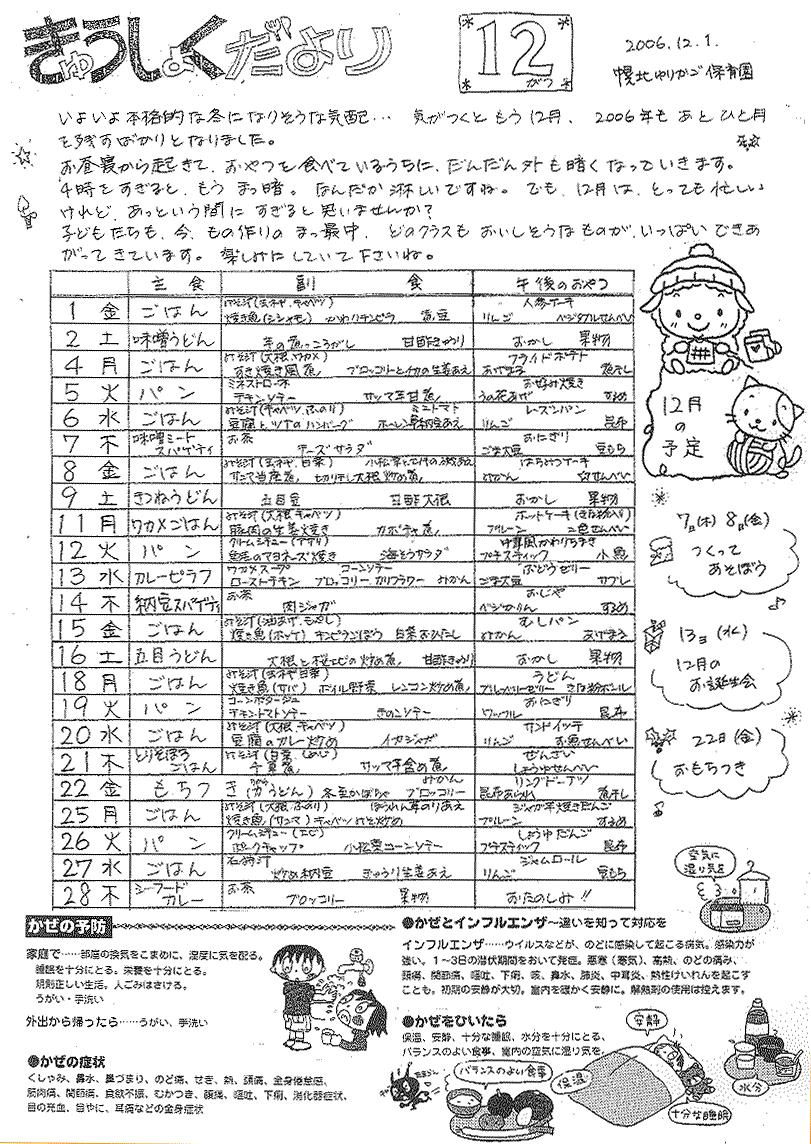 きゅうしょくだより
12
がつ
2006.12.1.
幌北ゆりかご保育園
いよいよ本格的な冬になりそうな気配… 気がつくともう12月、2006年もあとひと月
を残すばかりとなりました。
お昼寝から起きて、おやつを食べているうちに、だんだん外も暗くなっていきます。
4時をすぎると、もうまっ暗。なんだか淋しいですね。でも、12月は、とっても忙しい
けれど、あっという間にすぎると思いませんか?
子どもたちも、今、もの作りのまっ最中、どのクラスもおいしそうなものが、いっぱいできあ
がってきています。楽しみにしていて下さいね。
主食 副食 午後のおやつ
みそ汁(玉ネギ、キャベツ) 人参ケーキ
1 金 ごはん 焼き魚(シシャモ) かわりキンピラ 煮豆 りんご ベジタブルせんべい
2 土 味噌うどん 芋の煮っころがし 甘酢きゅうり おかし 果物
みそ汁(大根、ワカメ) フライドポテト
4 月 ごはん すき焼き風煮 ブロッコリーとイカの生姜あえ あげまる 煮干し
ミネストローネ お好み焼き
5 火 パン チキンソテー サツマ芋甘煮 うの花あげ するめ
みそ汁(キャベツ、ふのり) ミニトマト レーズンパン
6 水 ごはん 豆腐とツナのハンバーグ ホーレン草納豆あえ りんご 昆布
7 木 味噌ミートスパゲティ お茶 チーズサラダ おにぎり ごま大豆 豆もち
みそ汁(玉ネギ、白菜) はちみつケーキ
8 金 ごはん サンマ当座煮 切り干し大根炒め煮 みかん せんべい
9 土 きつねうどん 五目豆 甘酢大根 おかし 果物
みそ汁(大根、キャベツ) ホットケーキ(きな粉入り)
11 月 ワカメごはん 豚肉の生姜焼き カボチャ煮 プルーン 二色せんべい
クリームシチュー(アサリ) 中華風かわりちまき
12 火 パン 生活のマヨネーズ焼き 海そうサラダ プチスティック 小魚
ワカメスープ コーンソテー ぶどうゼリー
13 水 カレーピラフ ローストチキン ブロッコリー、カリフラワー みかん ごま大豆 サブレ
14 木 納豆スパゲティ お茶 肉ジャガ おじや ベジかりん するめ
みそ汁(油あげ、もやし) むしパン
15 金 ごはん 焼き魚(ホッケ) キンピラごぼう 白菜おひたし みかん あげまる
16 土 五目うどん 大根と桜エビの炒め煮 甘酢きゅうり おかし 果物
みそ汁(玉ネギ、白菜) うどん
18 月 ごはん 焼き魚(サバ) ボイル野菜 レンコン炒め煮 ブルーベリーゼリー きな粉ボール
コーンポタージュ おにぎり
19 火 パン チキントマトソテー きのこソテー ワッフル 昆布
みそ汁(大根、キャベツ) サンドイッチ
20 水 ごはん 豆腐のカレー炒め イカジャガ りんご お魚せんべい
みそ汁(白菜、しめじ) ぜんざい
21 木 とりそぼろごはん 千草煮 サツマ芋含め煮 しょうゆせんべい
みかん リングドーナツ
22 金 もちつき(力うどん) 冬至かぼちゃ ブロッコリー 昆布あられ 煮干し
みそ汁(大根、ふのり) ほうれん草のりあえ ジャガ芋焼きだんご
25 月 ごはん 焼き魚(サンマ) キャベツみそ炒め プルーン するめ
クリームシチュー(エビ) しょうゆだんご
26 火 パン ポークチャップ 小松菜コーンソテー プチスティック 昆布
27 水 ごはん 石狩汁 炒め納豆 きゅうり生姜あえ ジャムロール りんご 豆もち
28 木 シーフードカレー お茶 ブロッコリー 果物 おたのしみ!!
12月の予定
7日(木) 8日(金)
つくって
あそぼう
13日(水)
12月の
お誕生会
22日(金)
おもちつき
空気に
湿り気を
かぜの予防
家庭で……部屋の換気をこまめに、湿度に気を配る。
睡眠を十分にとる。栄養を十分にとる。
規則正しい生活。人ごみはさける。
うがい・手洗い
外出から帰ったら……うがい、手洗い
●かぜの症状
くしゃみ、鼻水、鼻づまり、のど痛、せき、熱、頭痛、全身倦怠感、
筋肉痛、関節痛、食欲不振、むかつき、腹痛、嘔吐、下痢、消化器症状、
目の充血、目やに、耳痛などの全身症状
●かぜとインフルエンザ〜違いを知って対応を
インフルエンザ……ウイルスなどが、のどに感染して起こる病気。感染力が
強い。1〜3日の潜伏期間をおいて発症。悪寒(寒気)、高熱、のどの痛み、
頭痛、関節痛、嘔吐、下痢、咳、鼻水、肺炎、中耳炎、熱性けいれんを起こす
ことも。初期の安静が大切。室内を暖かく安静に。解熱剤の使用は控えます。
●かぜをひいたら
保温、安静、十分な睡眠、水分を十分にとる、
バランスのよい食事、室内の空気に湿り気を。
安静
バランスのよい食事
保温
十分な睡眠
水分